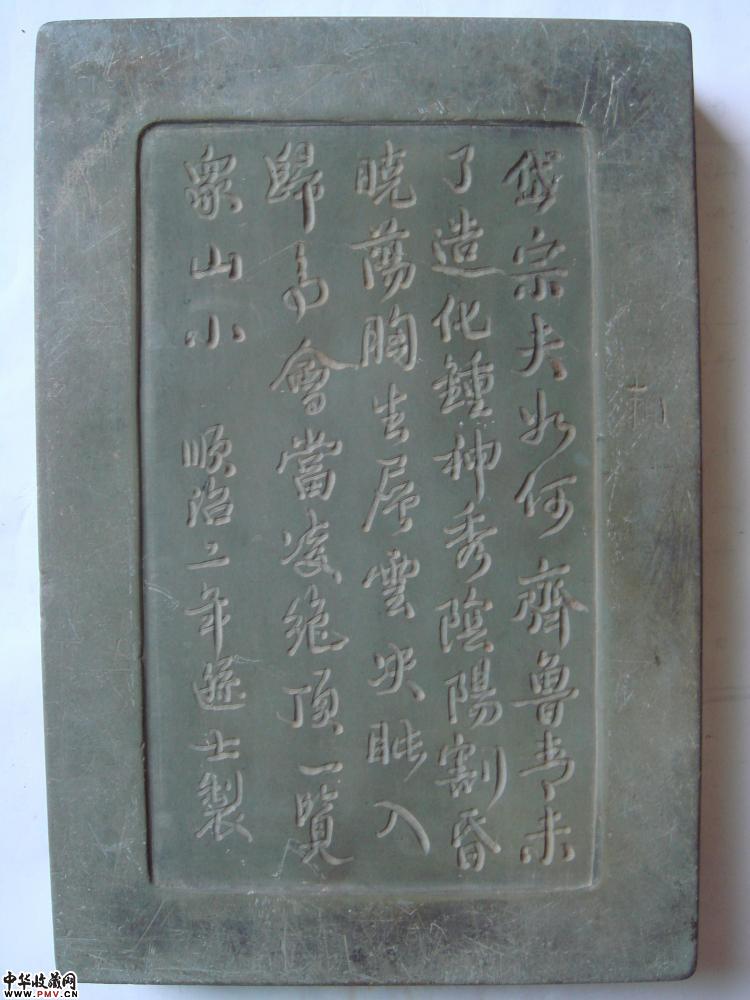 岱宗夫如何齊魯青未
了造化鍾神秀陰陽割昏
曉蕩胸生層雲決眥入
歸鳥會當凌絶頂一覽
衆山小 順治二年 士製
中华收藏网
www.PMV.CN